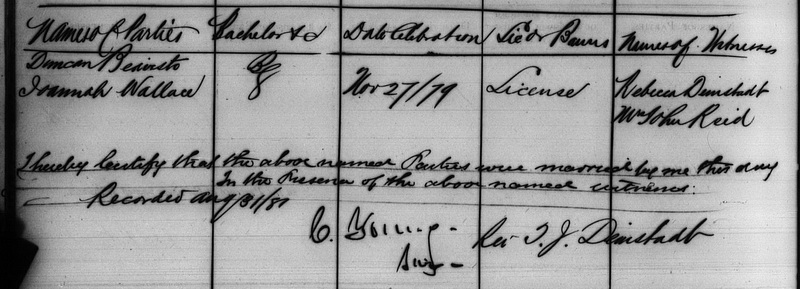 Names of Parties Bachelor &c Date Celebration Lic. or Banns Names of Witnesses
Duncan Beairsto
Joannah Wallace Nov 27/79 License Rebecca Deinstadt
Mrs John Reid
I hereby Certify that the above named Parties were married by me this day
In the Presence of the above named witnesses.
Recorded Aug/31/81
C. Young - Rev T. J. Deinstadt